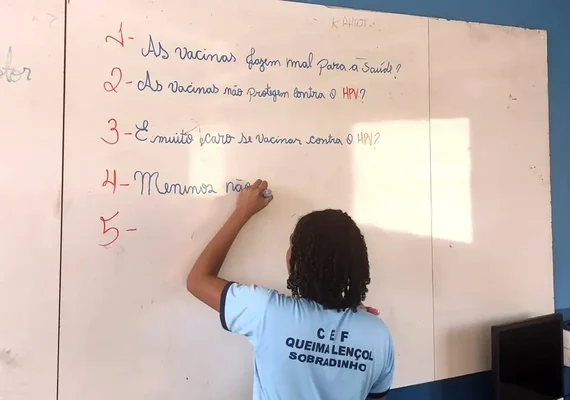 1- As vacinas fazem mal para a saúde?
2- As vacinas não protegem contra o HPV?
3- É muito caro se vacinar contra o HPV?
4- Meninos não
5-
C E F
QUEIMA LENÇOL
SOBRADINHO